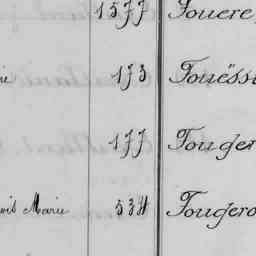 1577 Fouere
173 Fouëss
177 Fouger
Marie 534 Fougero